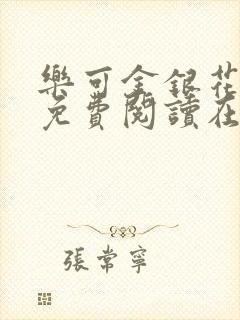 樂可金銀花
免費閱讀在
張常寧